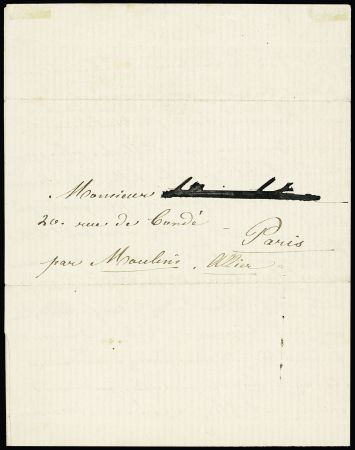 Monsieur
20. rue de Condé
Paris
par Moulins. Allier